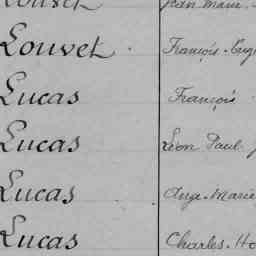 Louvet Jean Marie
Louvet François - Eug
Lucas François
Lucas Léon Paul
Lucas Ange-Marie
Lucas Charles-Ho